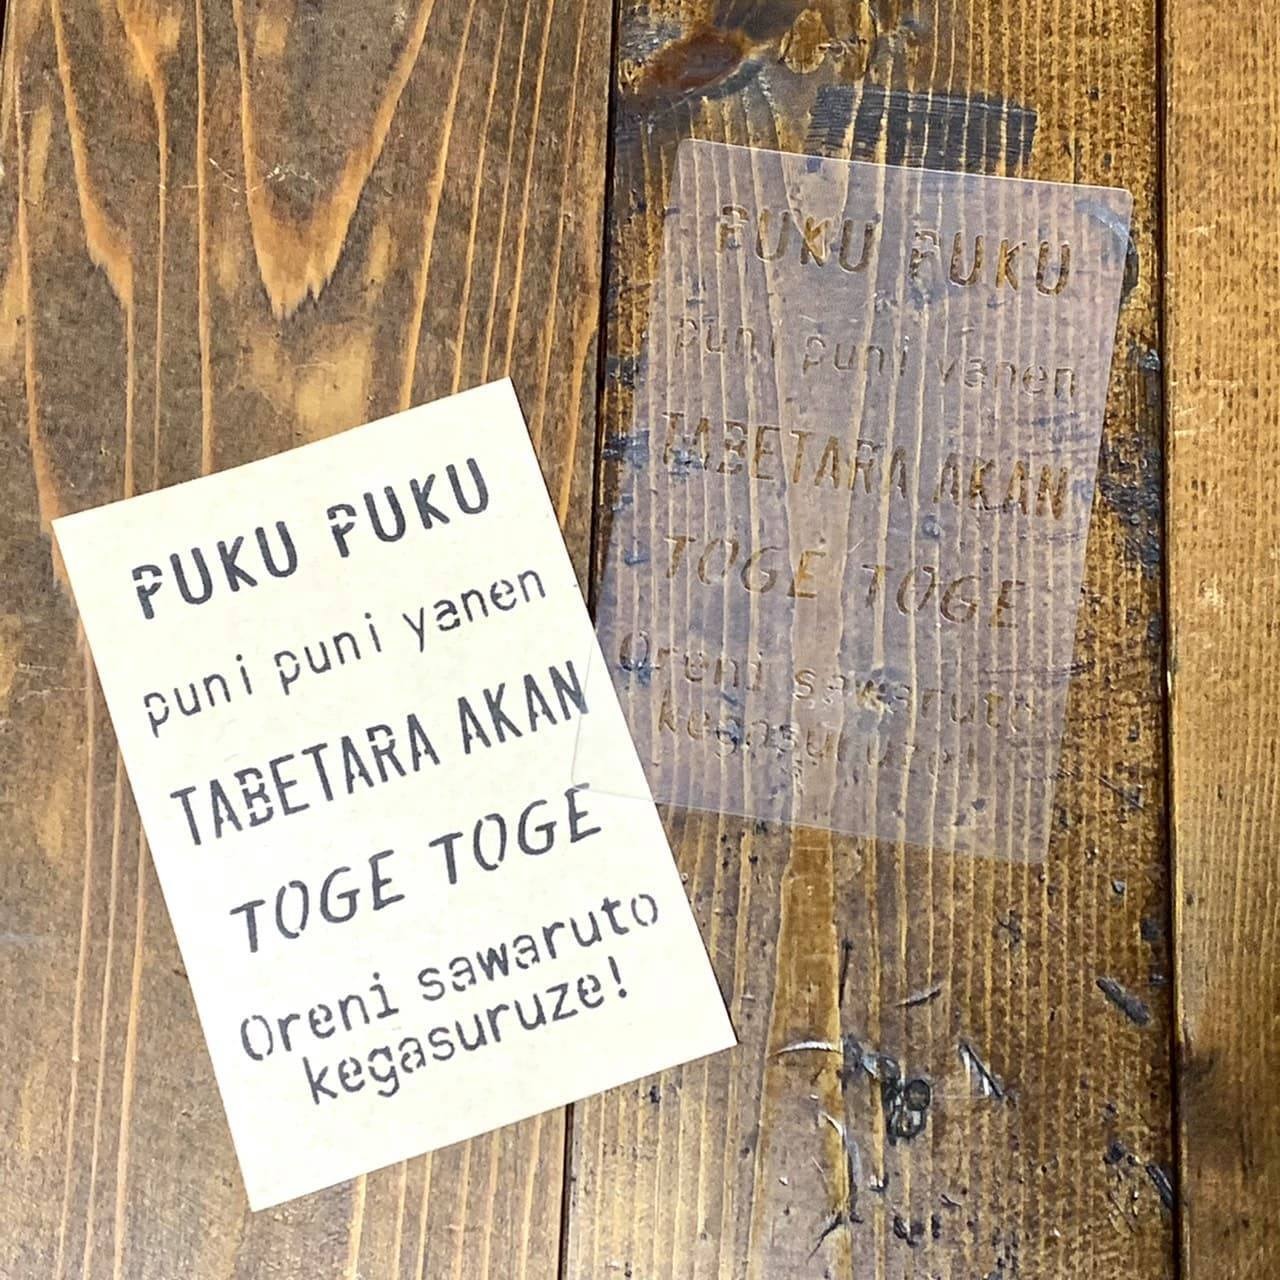 PUKU PUKU
puni puni yanen
TABETARA AKAN
TOGE TOGE
Oreni sawaruto
kegasuruze!
PUKU PUKU
puni puni yanen
TABETARA AKAN
TOGE TOGE
Oreni sawaruto
kegasuruze!